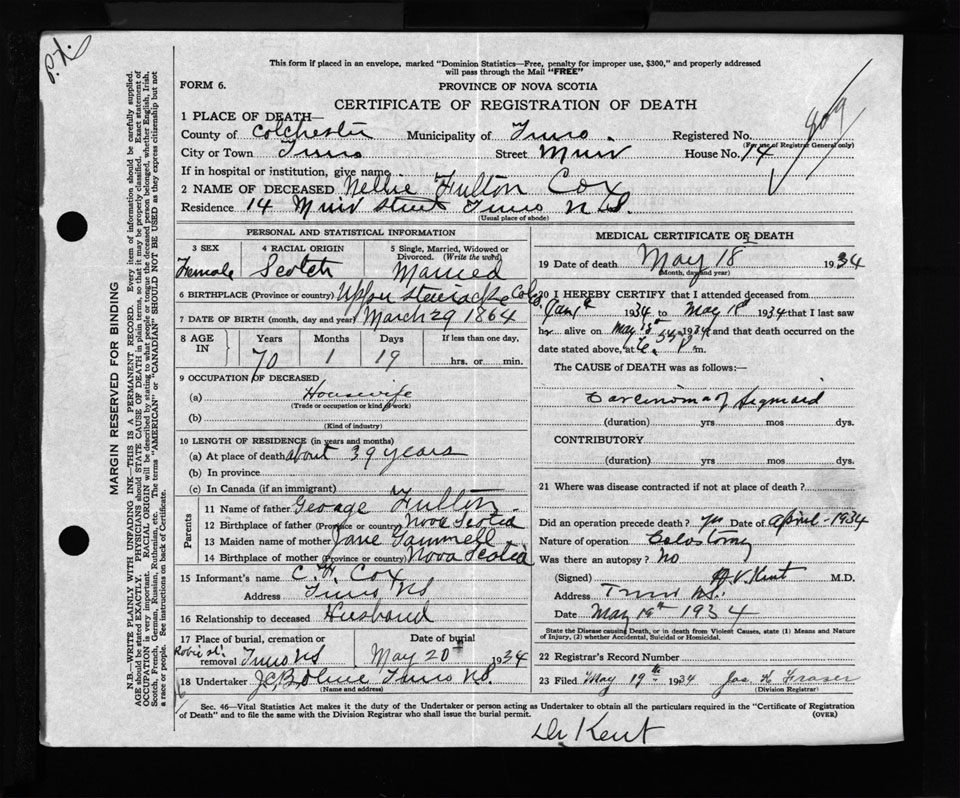 P.X.
This form if placed in an envelope, marked "Dominion Statistics—Free, penalty for improper use, $300," and properly addressed
will pass through the Mail "FREE"
FORM 6.
PROVINCE OF NOVA SCOTIA
CERTIFICATE OF REGISTRATION OF DEATH
809
1 PLACE OF DEATH—
County of Colchester Municipality of Truro. Registered No.
(For use of Registrar General only)
City or Town Truro Street Muir House No. 14
If in hospital or institution, give name
2 NAME OF DECEASED Nellie Fulton Cox
Residence 14 Muir Street Truro N.S.
(Usual place of abode)
PERSONAL AND STATISTICAL INFORMATION
3 SEX 4 RACIAL ORIGIN 5 Single, Married, Widowed or Divorced. (Write the word)
Female Scotch Married
6 BIRTHPLACE (Province or country) Upper Stewiacke Col.
7 DATE OF BIRTH (month, day and year) March 29 1864
8 AGE IN Years Months Days If less than one day,
70 1 19 hrs. or min.
9 OCCUPATION OF DECEASED
(a) Housewife
(Trade or occupation or kind of work)
(b)
(Kind of industry)
10 LENGTH OF RESIDENCE (in years and months)
(a) At place of death about 39 years
(b) In province
(c) In Canada (if an immigrant)
Parents
11 Name of father George Fulton.
12 Birthplace of father (Province or country) Nova Scotia
13 Maiden name of mother Jane
14 Birthplace of mother (Province or country) Nova Scotia
15 Informant's name C. Cox
Address Truro NS
16 Relationship to deceased Husband
17 Place of burial, cremation or removal Date of burial
Robie St. Truro NS May 20th 1934
18 Undertaker Truro NS.
(Name and address)
MEDICAL CERTIFICATE OF DEATH
19 Date of death May 18 1934
(Month, day and year)
20 I HEREBY CERTIFY that I attended deceased from
1934 to May 18th 1934 that I last saw
her alive on May 1934 and that death occurred on
date stated above, at P. m.
The CAUSE of DEATH was as follows:—
Carcinoma of Sigmoid
(duration) yrs mos dys.
CONTRIBUTORY
(duration) yrs mos dys.
21 Where was disease contracted if not at place of death?
Did an operation precede death? yes Date of April - 1934
Nature of operation Colostomy
Was there an autopsy? No
(Signed) Kent M.D.
Address Truro NS.
Date May 19th 1934
State the Disease causing Death, or in death from Violent Causes, state (1) Means and Nature
of Injury, (2) whether Accidental, Suicidal or Homicidal.
22 Registrar's Record Number
23 Filed May 19th 1934 Jas. Fraser
(Division Registrar)
Sec. 46—Vital Statistics Act makes it the duty of the Undertaker or person acting as Undertaker to obtain all the particulars required in the "Certificate of Registration
of Death" and to file the same with the Division Registrar who shall issue the burial permit. (OVER)
Dr Kent
MARGIN RESERVED FOR BINDING
N.B.—WRITE PLAINLY WITH UNFADING INK—THIS IS A PERMANENT RECORD. Every item of information should be carefully supplied.
AGE should be stated EXACTLY. PHYSICIANS should STATE CAUSE OF DEATH in plain terms, so that it may be properly classified. Exact statement of
OCCUPATION is very important. RACIAL ORIGIN will be described by stating to what people or tongue the deceased person belonged, whether English, Irish,
Scotch, French, German, Russian, Ruthenian, etc. The terms "AMERICAN" or "CANADIAN" SHOULD NOT BE USED as they express citizenship but not
a race or people. See instructions on back of Certificate.